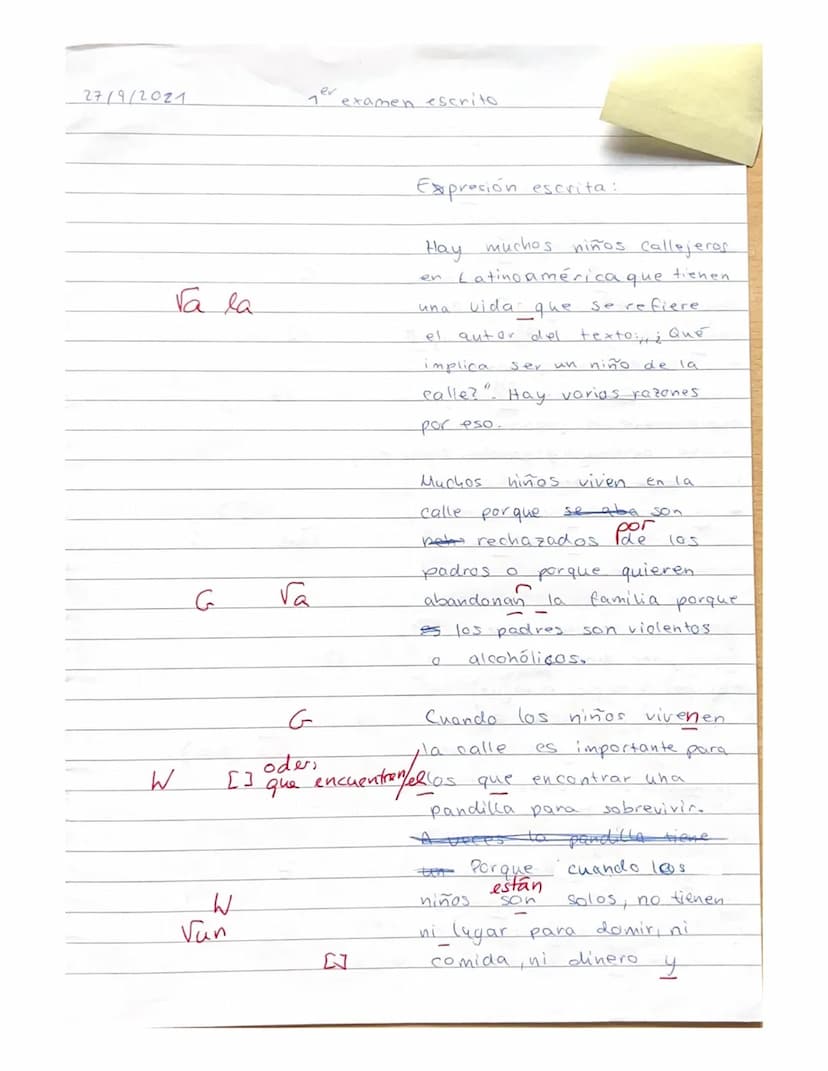 27/9/2021 1er examen escrito
Expresión escrita:
Hay muchos niños callejeros
en Latinoamérica que tienen
√a la una vida que se refiere
el autor del texto: „¿Qué
implica ser un niño de la
calle?". Hay varias razones
por eso.
Muchos niños viven en la
calle porque se aba son
por
rechazados de los
padres o porque quieren
G √a abandonan r la familia porque
es los padres son violentos
o alcohólicos.
G Cuando los niños vivenen
la calle es importante para
oder:
W [] que encuentren/ellos que encontrar una
pandilla para sobrevivir.
A veces la pandilla tiene
un Porque cuando los
están
W niños son solos, no tienen
√un ni lugar para domir, ni
[] comida, ni dinero y